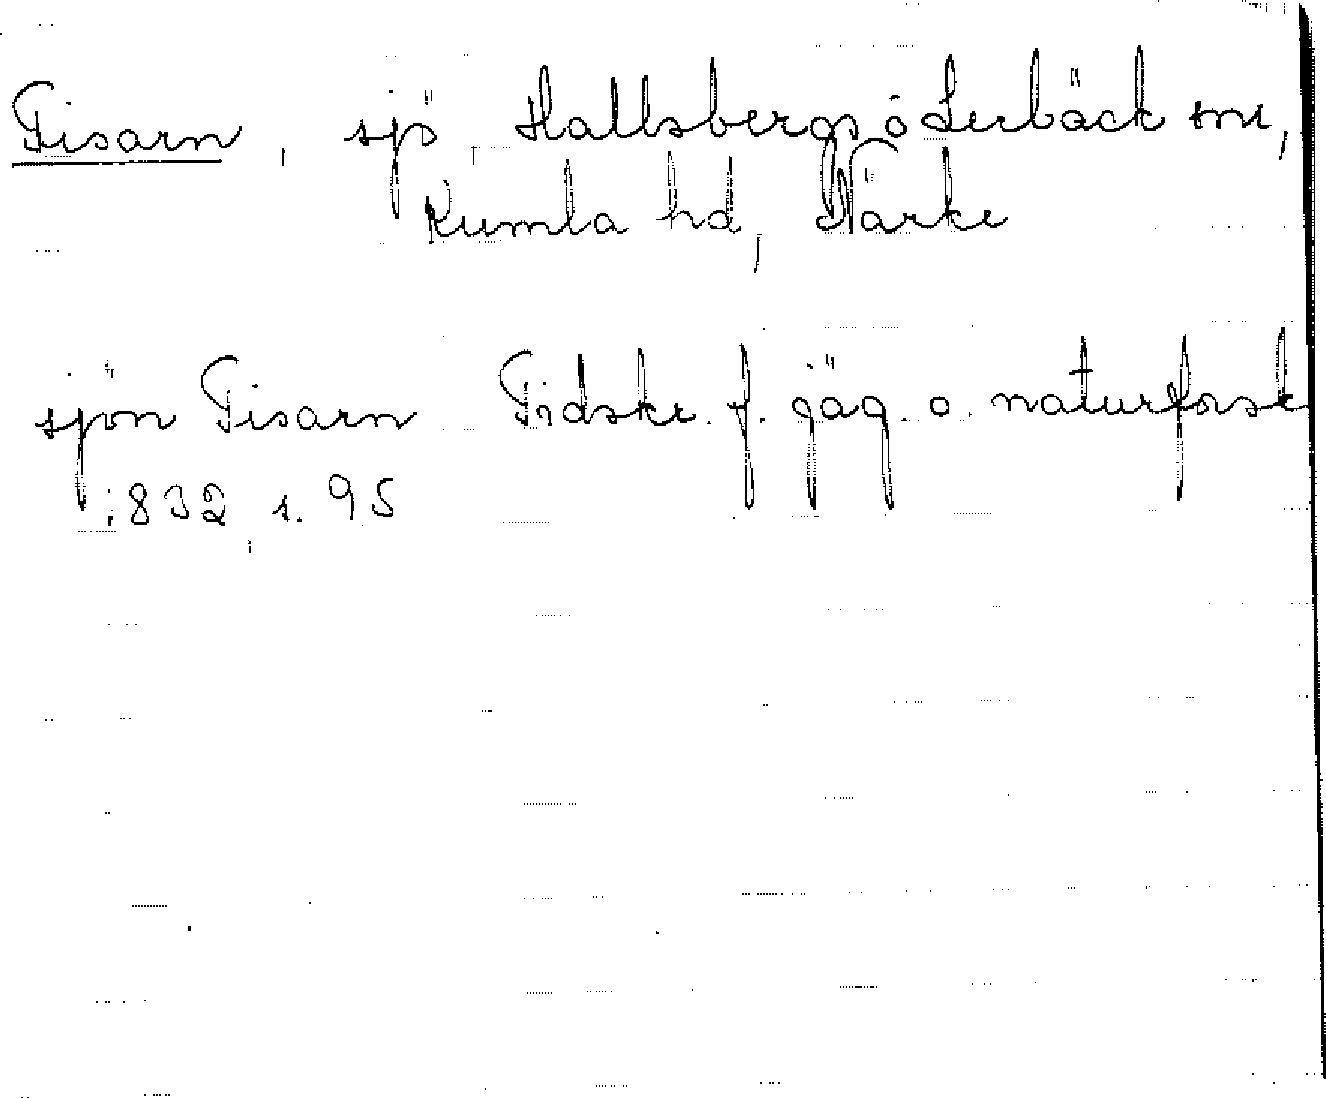 Tisarn, sjö Hallsbergs o Lerbäck snr,
Kumla hd, Närke
sjön Tisarn Tidskr. f. jäg. o. naturforsk
1832 s. 95